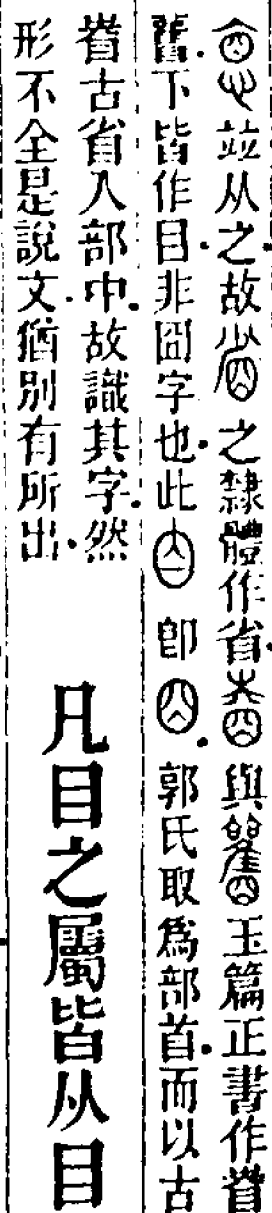 並从之故之隸體作省與玉篇正書作𥈠
下皆作目非囧字也此即郭氏取為部首而以古
𥄕古省入部中故識其字然
形不全是說文猶別有所出
凡目之屬皆从目